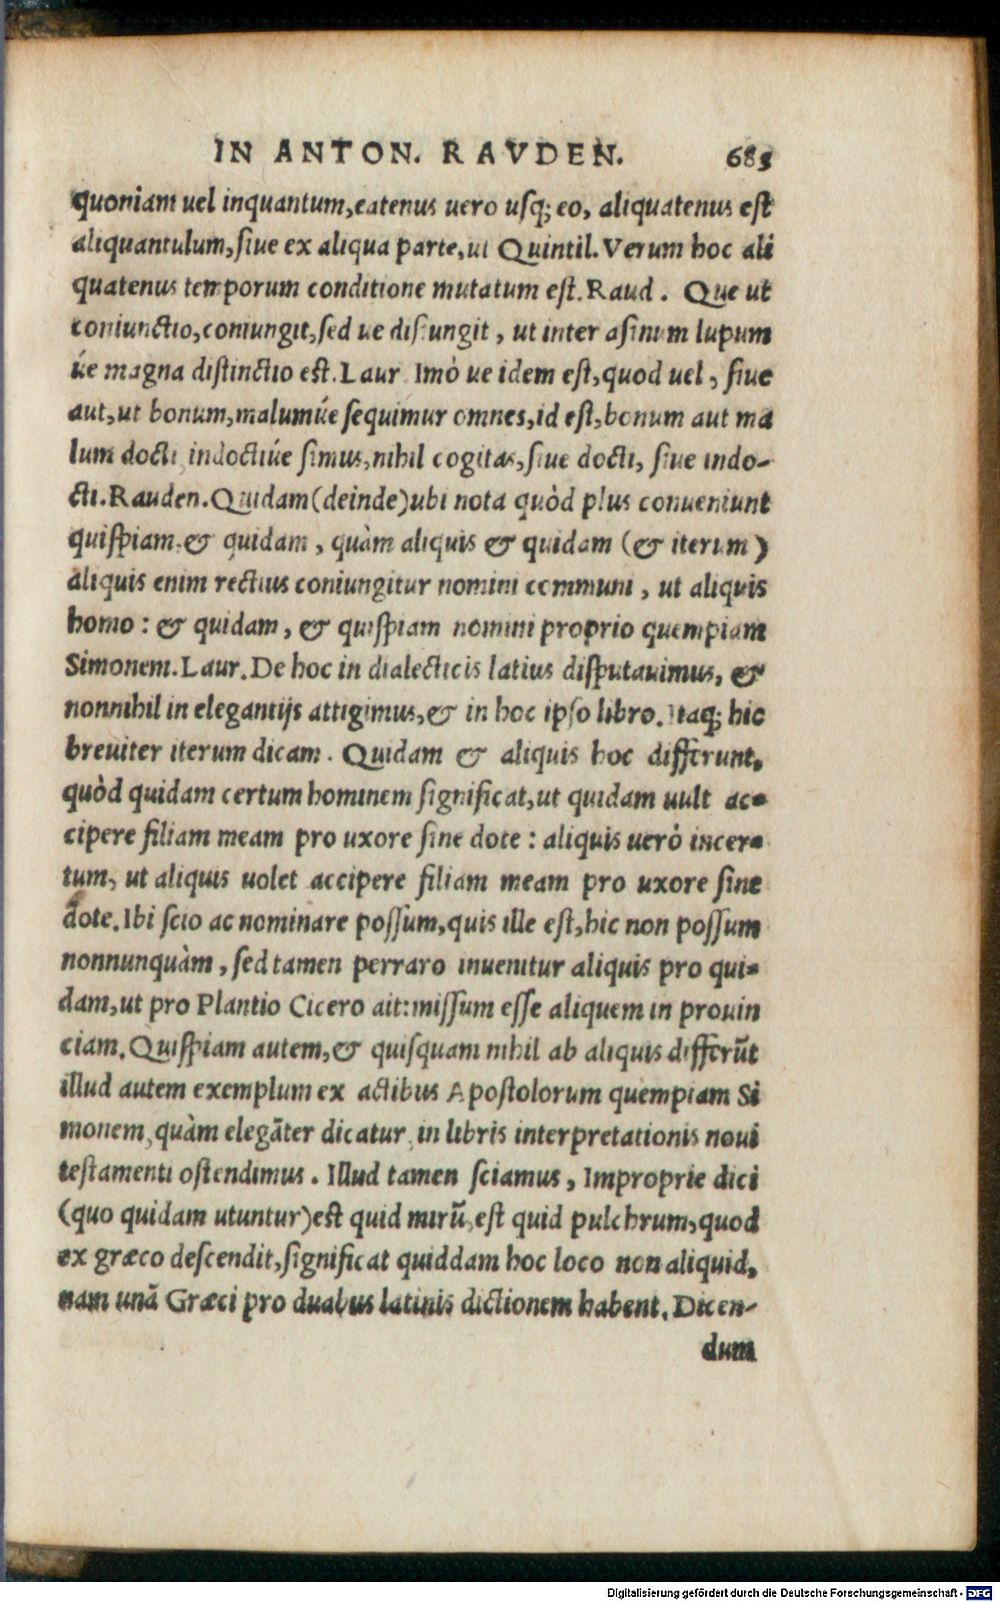 IN ANTON. RAVDEN. 683
quoniam uel inquantum,eatenus uero usq; eo, aliquatenus est
aliquantulum,siue ex aliqua parte,ut Quintil. Verum hoc ali
quatenus temporum conditione mutatum est. Raud. Que ut
coniunctio,coniungit,sed ue disiungit, ut inter asinum lupum
úe magna distinctio est. Laur Imò ue idem est,quod uel, siue
aut,ut bonum,malumúe sequimur omnes,id est,bonum aut ma
lum docti, indoctiúe simus,nihil cogitas,siue docti, siue indo-
cti. Rauden. Quidam (deinde) ubi nota quòd plus conueniunt
quispiam & quidam, quàm aliquis & quidam (& iterum)
aliquis enim rectius coniungitur nomini communi, ut aliquis
homo: & quidam, & quispiam nomini proprio quempiam
Simonem. Laur. De hoc in dialecticis latius disputauimus, &
nonnihil in elegantijs attigimus,& in hoc ipso libro. Itaq; hic
breuiter iterum dicam. Quidam & aliquis hoc differunt,
quòd quidam certum hominem significat,ut quidam uult ac-
cipere filiam meam pro uxore sine dote: aliquis uerò incer-
tum, ut aliquis uolet accipere filiam meam pro uxore sine
dote. Ibi scio ac nominare possum,quis ille est,hic non possum
nonnunquàm, sed tamen perraro inuenitur aliquis pro qui-
dam,ut pro Plantio Cicero ait: missum esse aliquem in prouin
ciam. Quispiam autem,& quisquam nihil ab aliquis differūt
illud autem exemplum ex actibus Apostolorum quempiam Si
monem,quàm elegāter dicatur, in libris interpretationis noui
testamenti ostendimus. Illud tamen sciamus, Improprie dici
(quo quidam utuntur) est quid mirū, est quid pulchrum,quod
ex græco descendit,significat quiddam hoc loco non aliquid,
nam unā Græci pro duabus latinis dictionem habent. Dicen-
dum
Digitalisierung gefördert durch die Deutsche Forschungsgemeinschaft - DFG